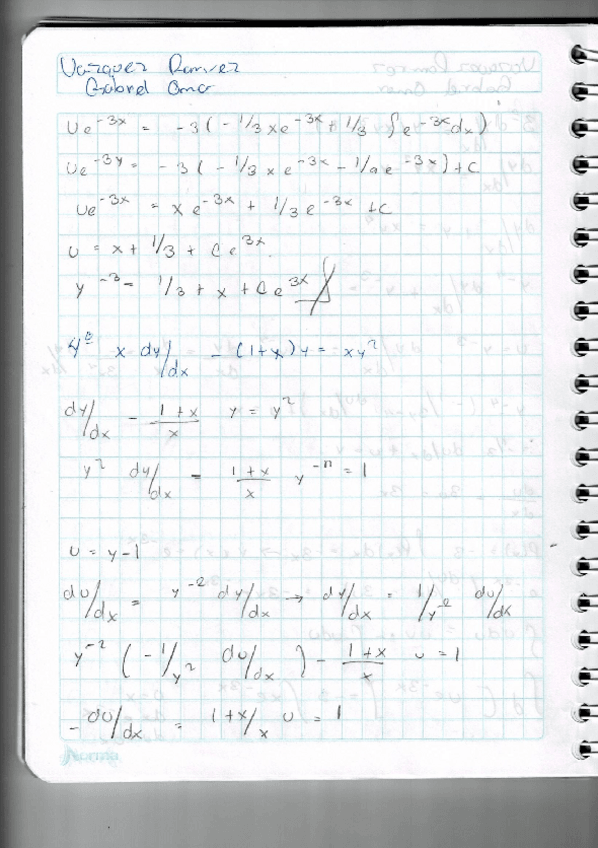 Vazquez Ramirez
Gabriel Omar
Ue^-3x = -3(-1/3 xe^-3x + 1/3 ∫e^-3x dx)
Ue^-3y = -3(-1/3 xe^-3x - 1/9 e^-3x)+C
Ue^-3x = xe^-3x + 1/3 e^-3x +C
U = x + 1/3 + Ce^3x.
y^-3 = 1/3 + x + Ce^3x
4° x dy/dx - (1+x)y = xy^2
dy/dx - 1+x/x y = y^2
y^2 dy/dx = 1+x/x y^-n = 1
U = y-1
du/dx = y^-2 dy/dx → dy/dx = 1/y^-2 du/dx
y^-2 (-1/y^2 du/dx) - 1+x/x u = 1
- du/dx = 1+x/x u = 1
Norma